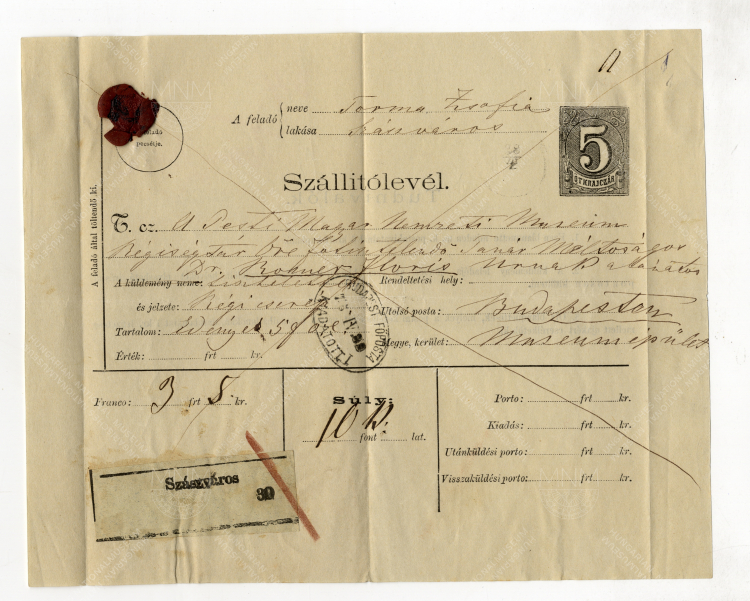 11
A feladó neve Torma Zsofia
lakása Szászváros
5
ÖT KRAJCZÁR
feladó
pecsétje.
Szállitólevél.
A feladó által töltendő ki.
T. cz. A Pesti Magyar Nemzeti Museum
Régiségtár Őre Tanár Méltóságos
Dr. Romer Floris Urnak
A küldemény neme: Rendeltetési hely:
és jelzete: Régi cserep Utolsó posta: Budapesten
Tartalom: Edények Megye, kerület: Museum épület
Érték: frt kr.
BUDAPEST FŐPOSTA
KIADATOTT
Franco: 3 frt 8 kr.
Súly:
10 font lat.
Porto: frt kr.
Kiadás: frt kr.
Utánküldési porto: frt kr.
Visszaküldési porto: frt kr.
Szászváros
30